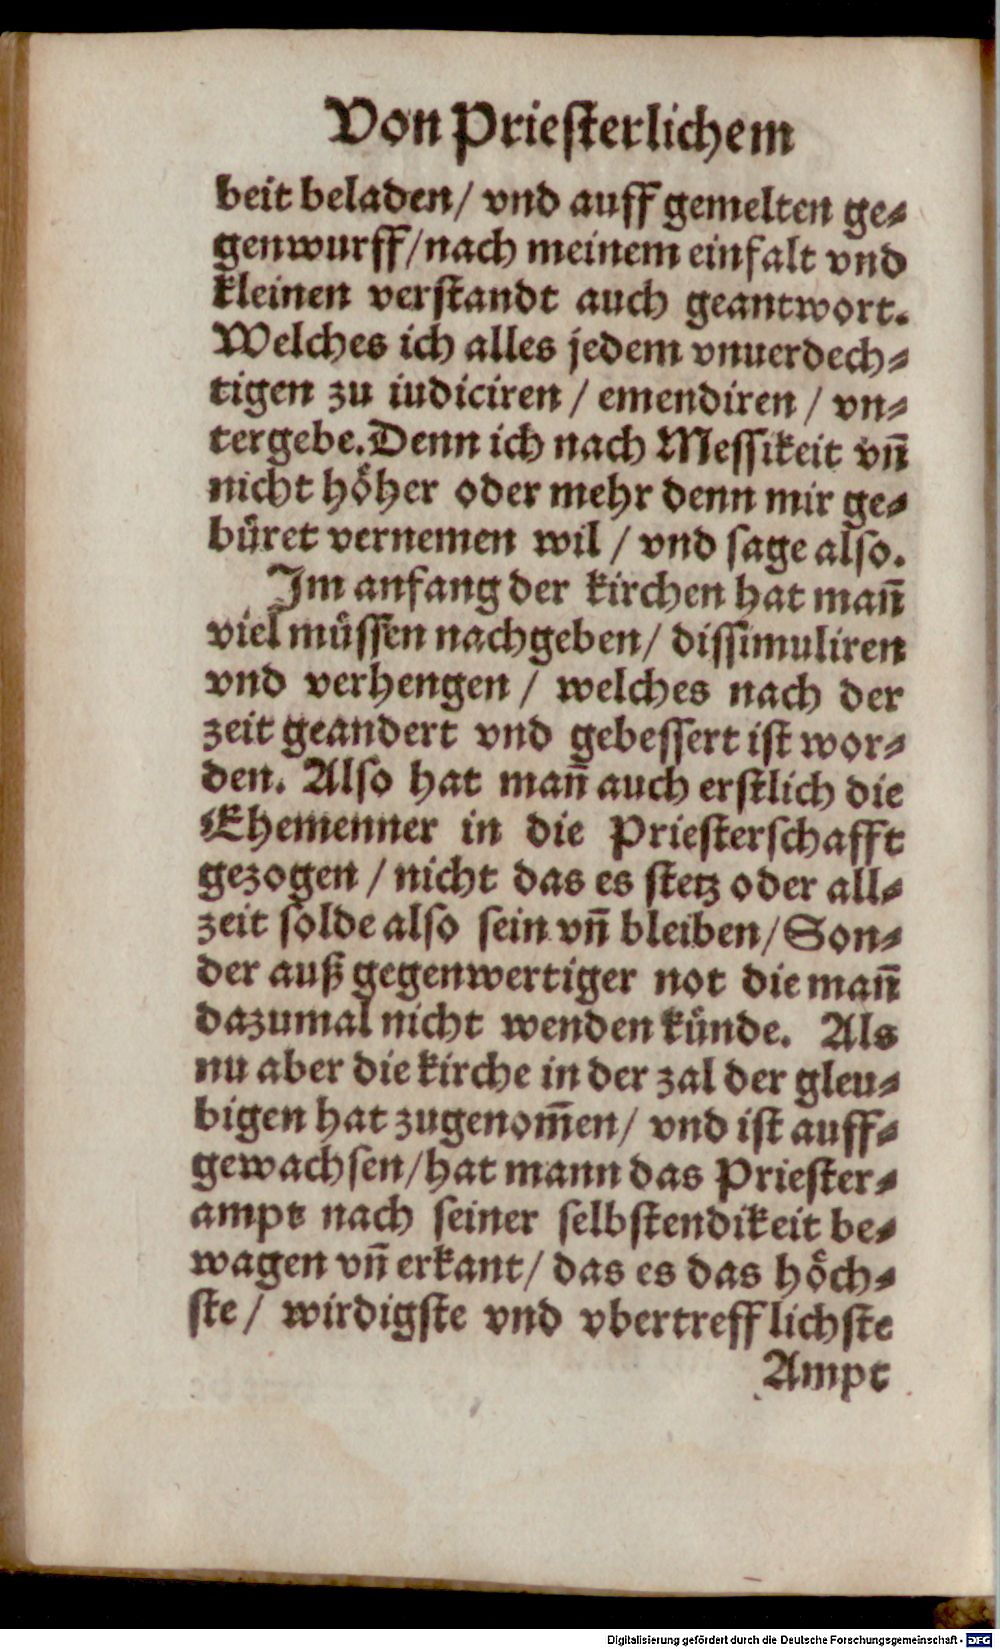 Von Priesterlichem
beit beladen/ vnd auff gemelten ge⸗
genwurff/nach meinem einfalt vnd
kleinen verstandt auch geantwort.
Welches ich alles jedem vnuerdech⸗
tigen zu iudiciren / emendiren / vn⸗
tergebe. Denn ich nach Messikeit vñ
nicht hoͤher oder mehr denn mir ge⸗
buͤret vernemen wil / vnd sage also.
Im anfang der kirchen hat mañ
viel muͤssen nachgeben/ dissimuliren
vnd verhengen / welches nach der
zeit geandert vnd gebessert ist wor⸗
den. Also hat mañ auch erstlich die
Ehemenner in die Priesterschafft
gezogen / nicht das es stetz oder all⸗
zeit solde also sein vñ bleiben/ Son⸗
der auß gegenwertiger not die mañ
dazumal nicht wenden kuͤnde. Als
nu aber die kirche in der zal der gleu⸗
bigen hat zugenom̃en/ vnd ist auff⸗
gewachsen/hat mann das Priester⸗
ampt nach seiner selbstendikeit be⸗
wagen vñ erkant/ das es das hoͤch⸗
ste / wirdigste vnd vbertrefflichste
Ampt
Digitalisierung gefördert durch die Deutsche Forschungsgemeinschaft - DFG